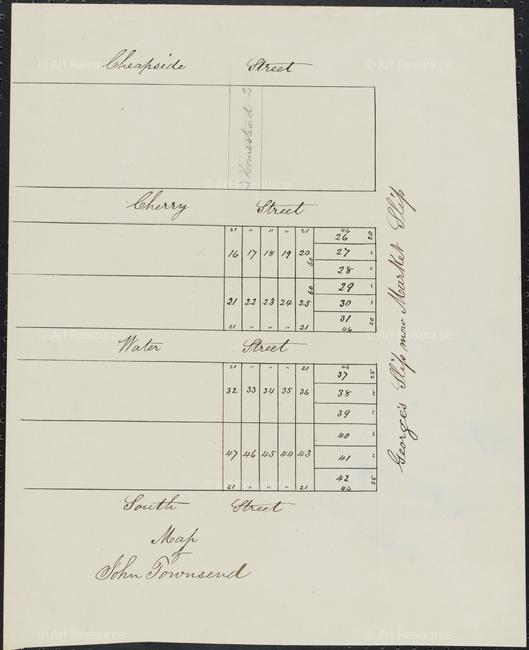 Cheapside Street
27 Homestead 27
Cherry Street
21 " " " 21 46
16 17 18 19 20 26 20
60 27 "
28 "
60 29 "
21 22 23 24 25 30 "
31 20
21 " " " 21 46
Water Street
21 " " " 21 46
32 33 34 35 36 37 25
38 "
39 "
40 "
47 46 45 44 43 41 "
42 25
21 " " " 21 46
South Street
George's Slip now Market Slip
Map
of
John Townsend
© Art Resource
© Art Resource
© Art Resource
© Art Resource
© Art Resource
© Art Resource